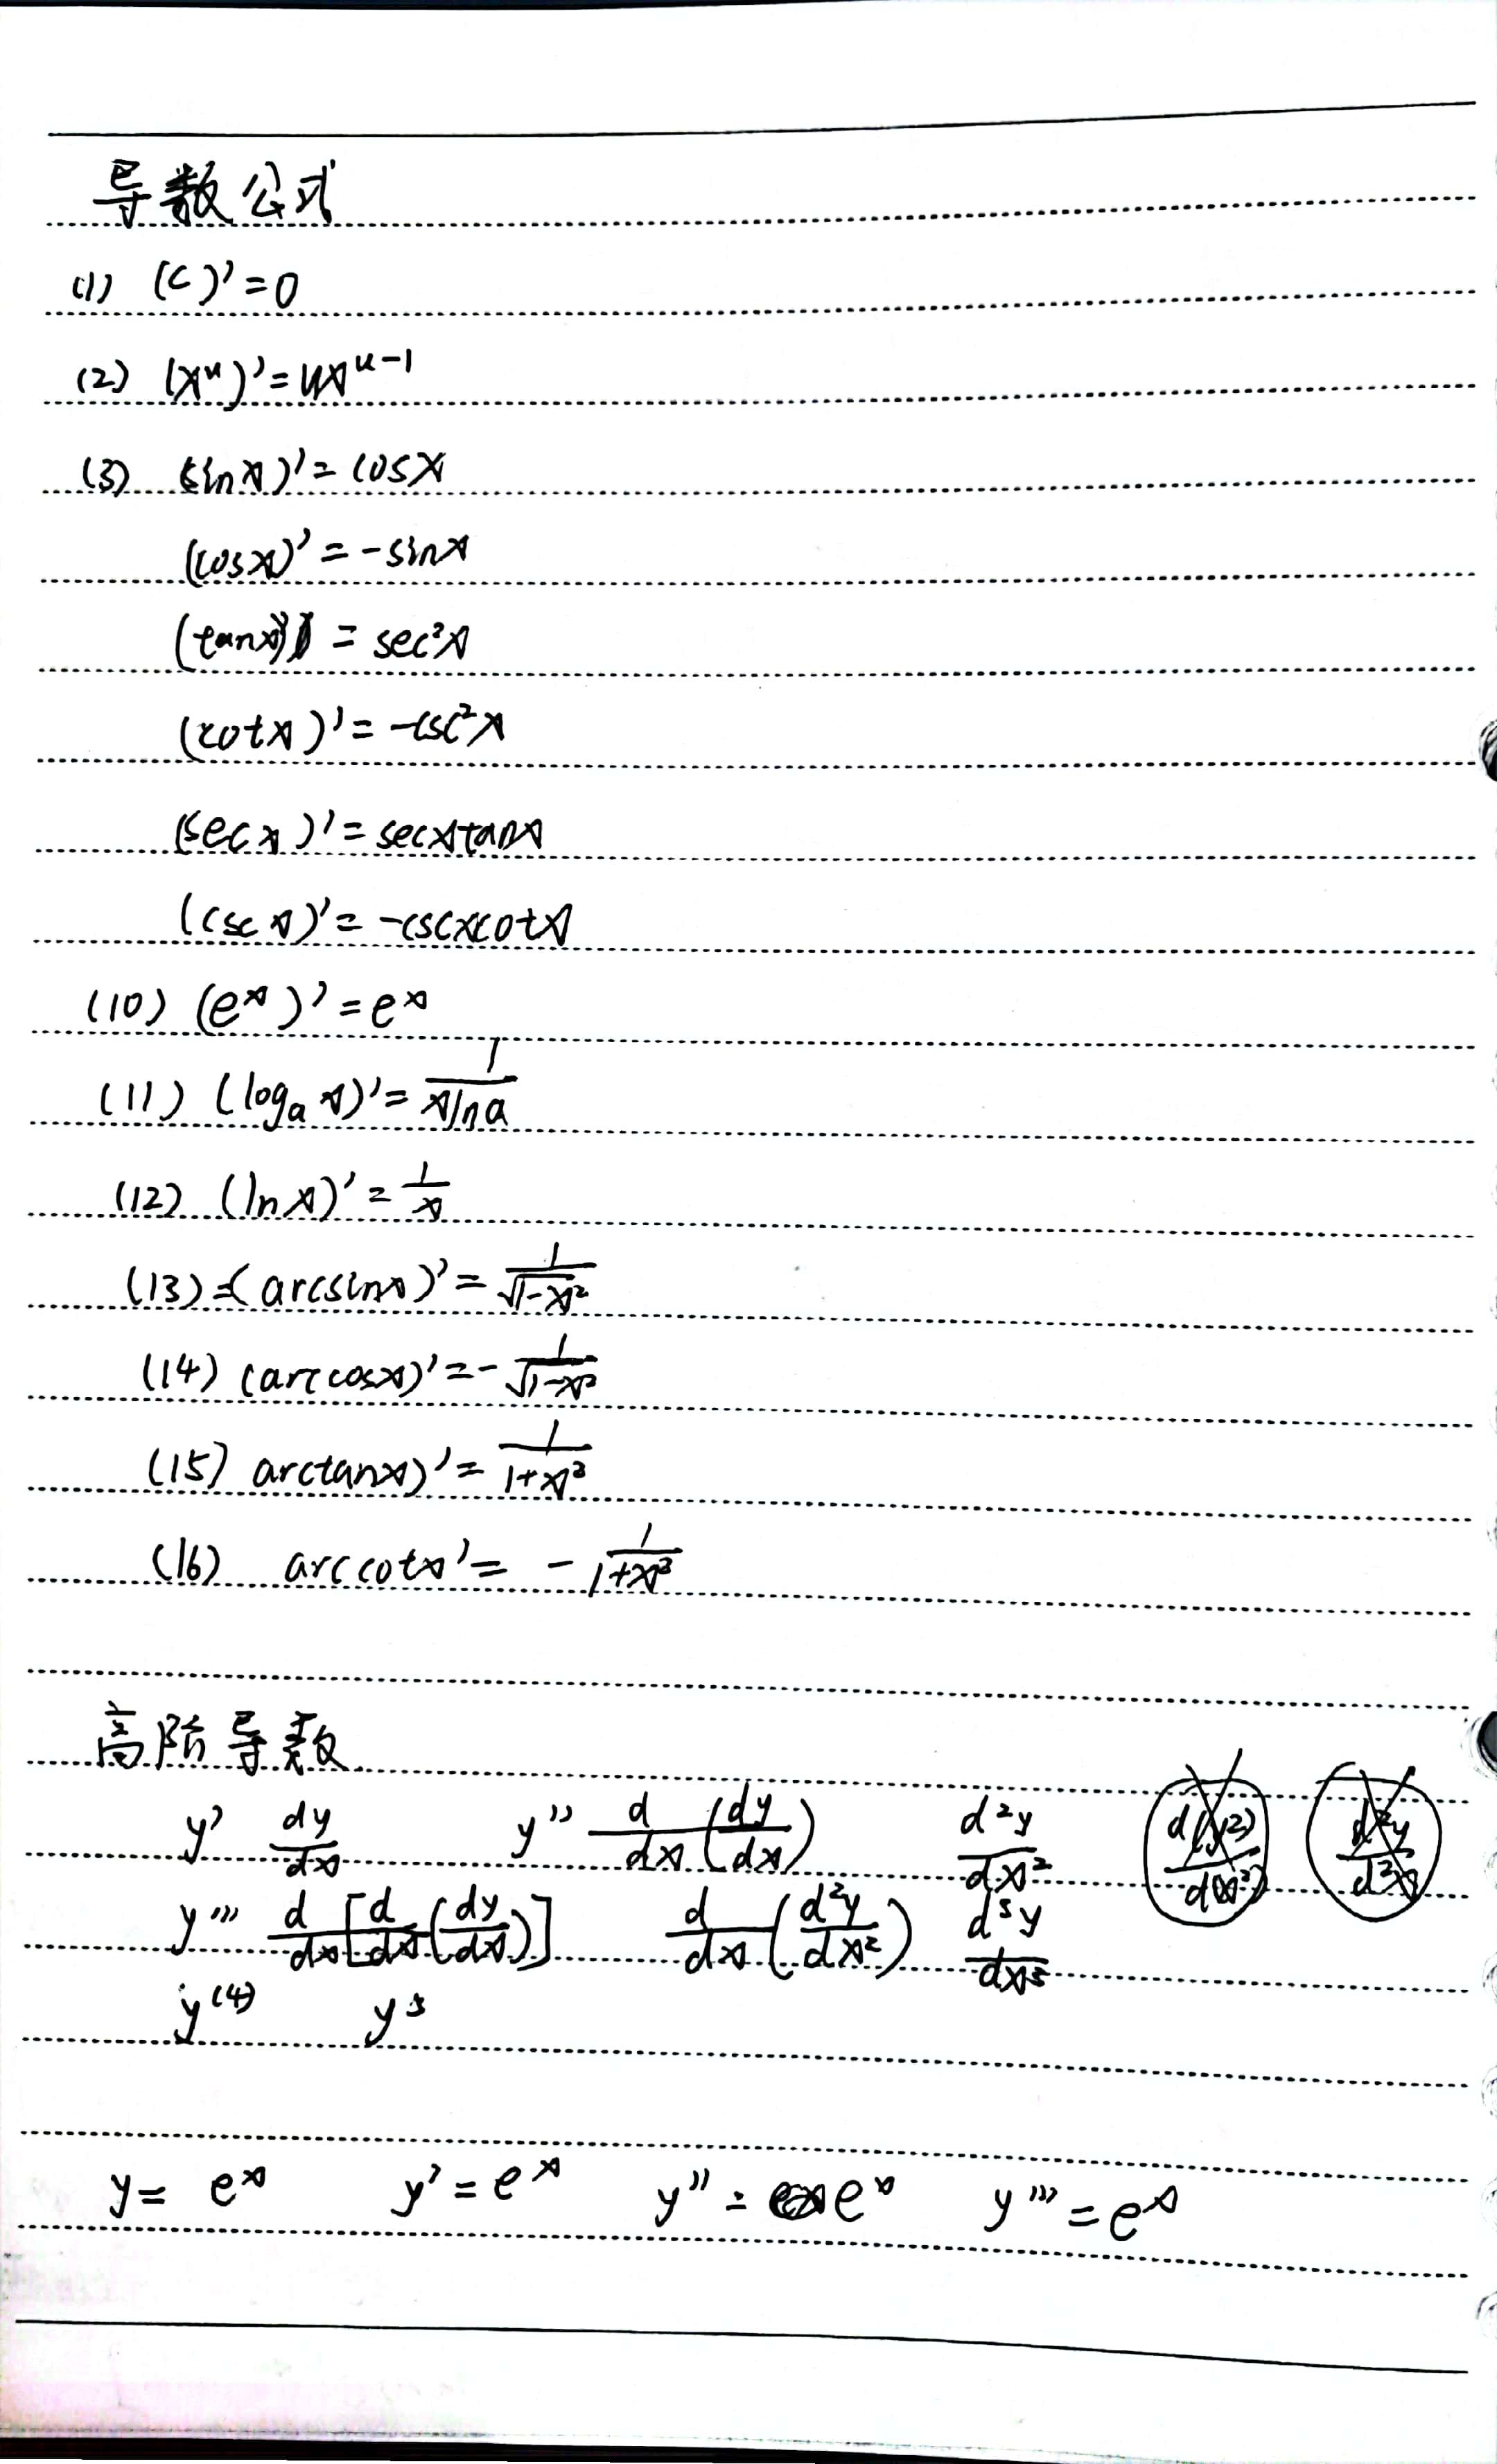 导数公式
(1) (C)'=0
(2) (x^u)'=ux^{u-1}
(3) (sinx)'=cosx
(cosx)'=-sinx
(tanx)'=sec²x
(cotx)'=-csc²x
(secx)'=secxtanx
(cscx)'=-cscxcotx
(10) (e^x)'=e^x
(11) (log_a x)'=1/(xlna)
(12) (lnx)'=1/x
(13) (arcsinx)'=1/√(1-x²)
(14) (arccosx)'=-1/√(1-x²)
(15) arctanx)'=1/(1+x²)
(16) arccotx'=-1/(1+x²)
高阶导数
y' dy/dx y'' d/dx(dy/dx) d²y/dx² d(y²)/d(x²) d²y/d²x
y''' d/dx[d/dx(dy/dx)] d/dx(d²y/dx²) d³y/dx³
y^(4) y³
y=e^x y'=e^x y''=e^x y'''=e^x